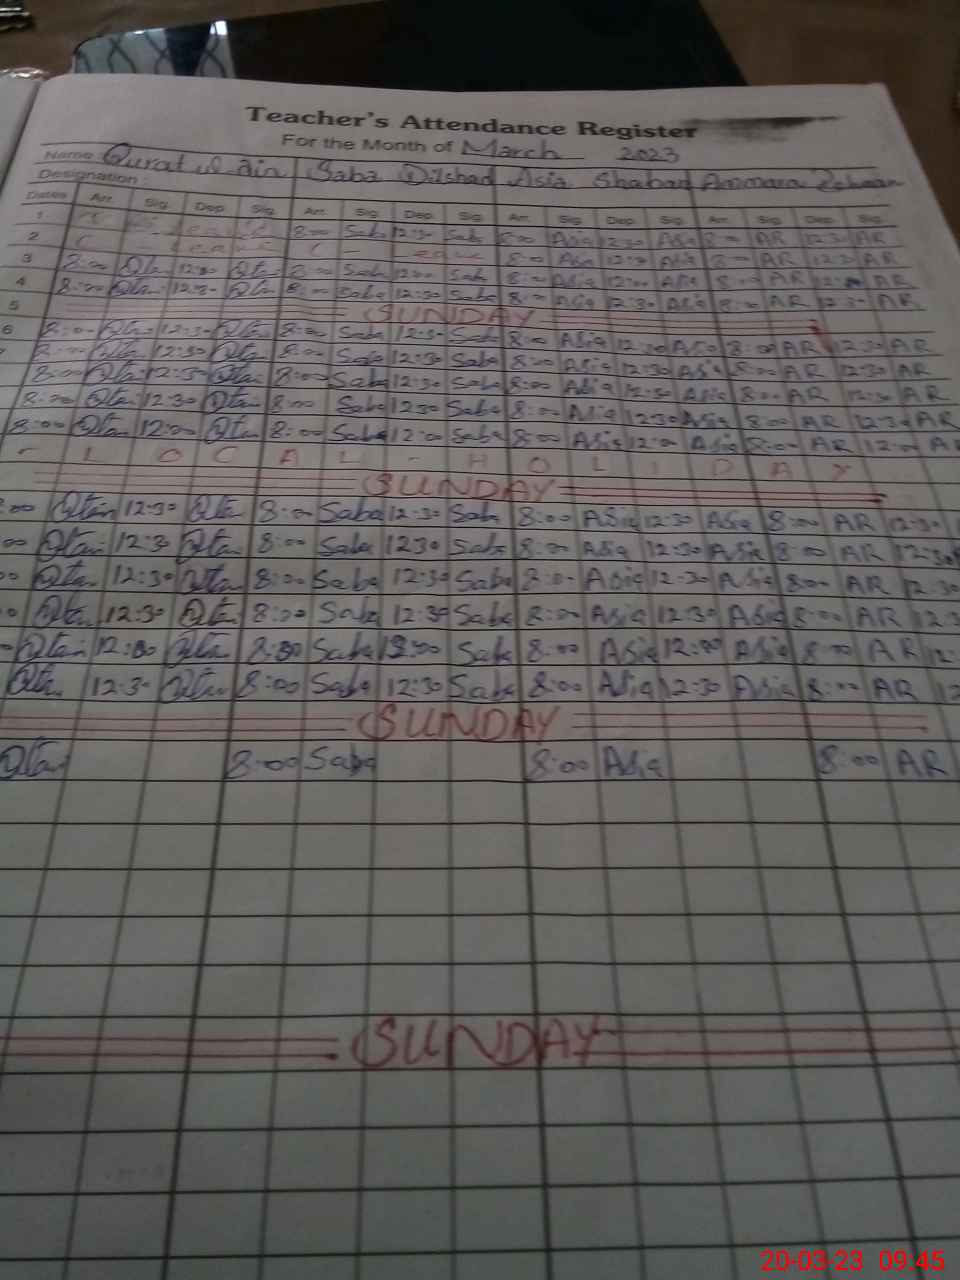 Teacher's Attendance Register
For the Month of March 2023
Name Qurat ul ain Saba Dilshad Asia Shabad Ammara Rehman
Designation
Dates Arr. Sig. Dep. Sig. Arr. Sig. Dep. Sig. Arr. Sig. Dep. Sig. Arr. Sig. Dep. Sig.
1 8:00 Saba 12:30 Saba 8:00 Asia 12:30 Asia 8:00 AR 12:30 AR
2 C - Leave C - Leave 8:00 Asia 12:30 Asia 8:00 AR 12:30 AR
3 8:00 Qtan 12:00 Qtan 8:00 Saba 12:00 Saba 8:00 Asia 12:00 Asia 8:00 AR 12:00 AR
4 8:00 Qtan 12:30 Qtan 8:00 Saba 12:30 Saba 8:00 Asia 12:30 Asia 8:00 AR 12:30 AR
5 SUNDAY
6 8:00 Qtan 12:30 Qtan 8:00 Saba 12:30 Saba 8:00 Asia 12:30 Asia 8:00 AR 12:30 AR
8:00 Qtan 12:30 Qtan 8:00 Saba 12:30 Saba 8:00 Asia 12:30 Asia 8:00 AR 12:30 AR
8:00 Qtan 12:30 Qtan 8:00 Saba 12:30 Saba 8:00 Asia 12:30 Asia 8:00 AR 12:30 AR
8:00 Qtan 12:30 Qtan 8:00 Saba 12:30 Saba 8:00 Asia 12:30 Asia 8:00 AR 12:30 AR
8:00 Qtan 12:00 Qtan 8:00 Saba 12:00 Saba 8:00 Asia 12:00 Asia 8:00 AR 12:00 AR
- L O C A L - H O L I D A Y
SUNDAY
:00 Qtan 12:30 Qtan 8:00 Saba 12:30 Saba 8:00 Asia 12:30 Asia 8:00 AR 12:30
00 Qtan 12:30 Qtan 8:00 Saba 1230 Saba 8:00 Asia 12:30 Asia 8:00 AR 12:30
00 Qtan 12:30 Qtan 8:00 Saba 12:30 Saba 8:00 Asia 12:30 Asia 8:00 AR 12:30
0 Qtan 12:30 Qtan 8:00 Saba 12:30 Saba 8:00 Asia 12:30 Asia 8:00 AR 12:3
Qtan 12:00 Qtan 8:00 Saba 12:00 Saba 8:00 Asia 12:00 Asia 8:00 AR 12:
Qtan 12:30 Qtan 8:00 Saba 12:30 Saba 8:00 Asia 12:30 Asia 8:00 AR 12
SUNDAY
Qtan 8:00 Saba 8:00 Asia 8:00 AR
SUNDAY
20-03-23 09:45